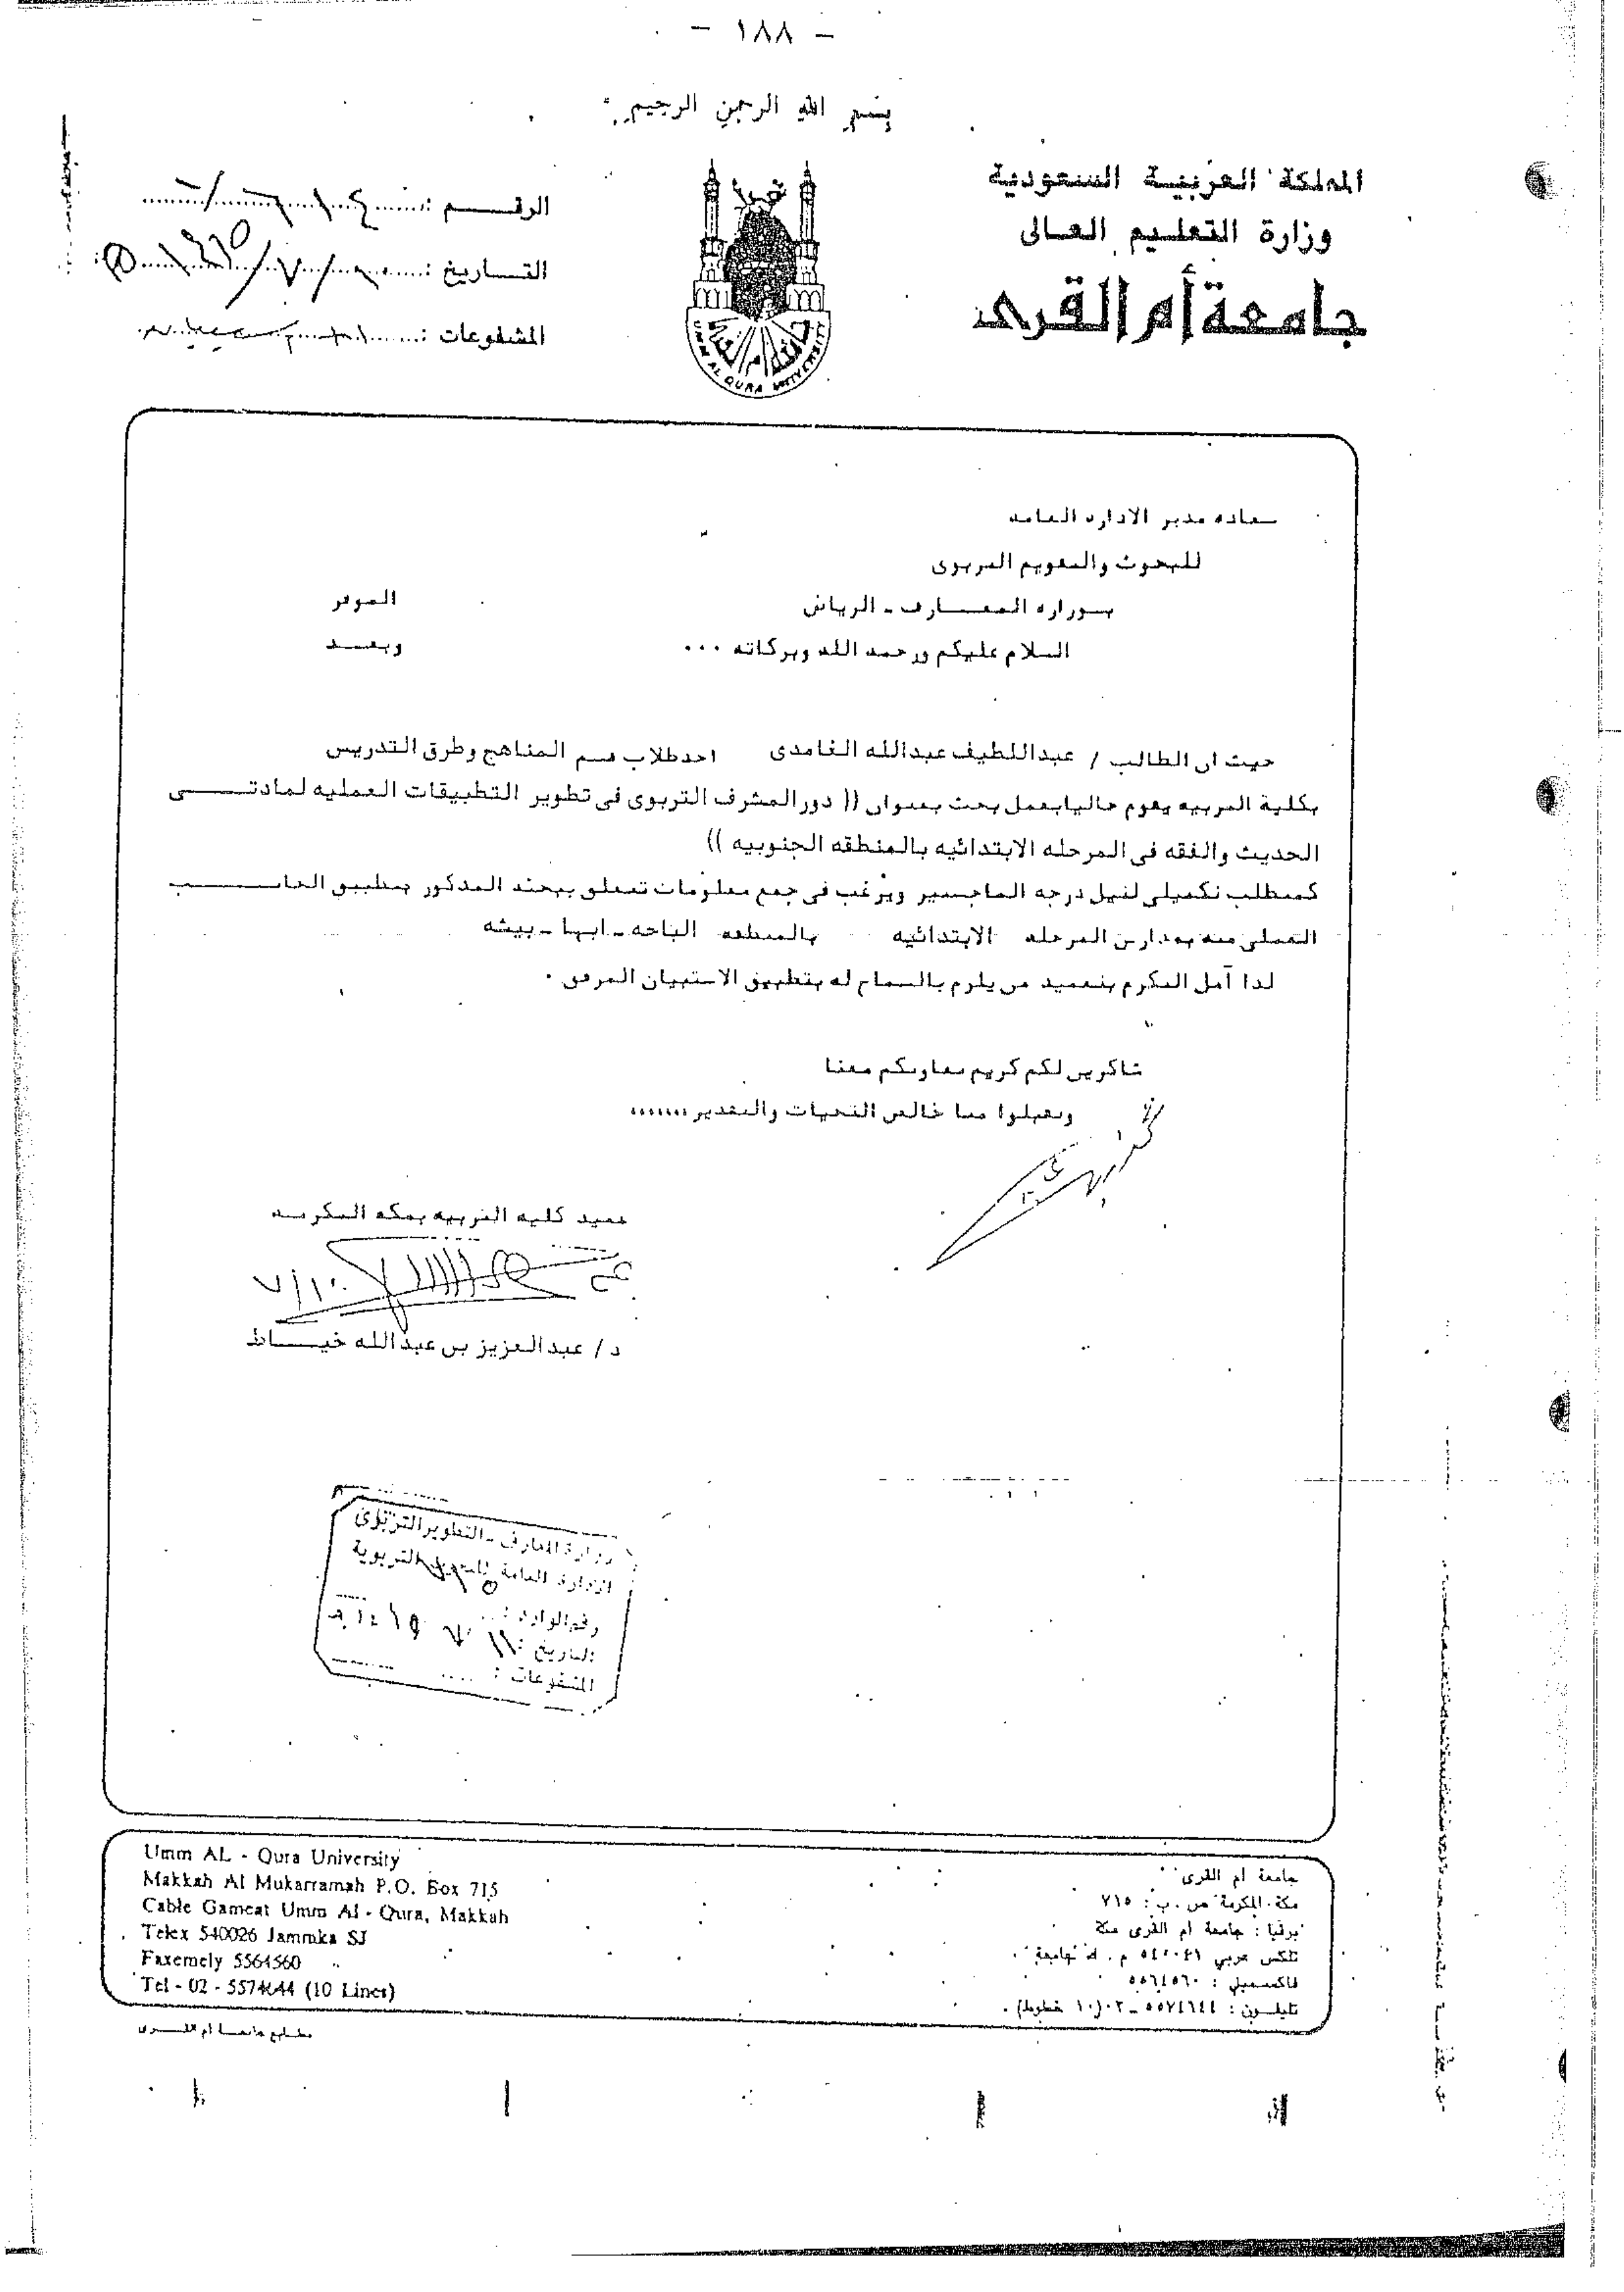 - ١٨٨ -
بسم الله الرحمن الرحيم
المملكة العربية السعودية
وزارة التعليم العالى
جامعة أم القرى
الرقم :
التاريخ :
المشفوعات :
UMM AL QURA UNIVERSITY
سعاده مدير الاداره العامه
للبحوث والتقويم التربوى
بوزاره المعارف - الرياض الموقر
السلام عليكم ورحمه الله وبركاته ... وبعد
حيث ان الطالب / عبداللطيف عبدالله الغامدى احد طلاب قسم المناهج وطرق التدريس
بكلية التربيه يقوم حاليا بعمل بحث بعنوان (( دور المشرف التربوى فى تطوير التطبيقات العمليه لمادتى
الحديث والفقه فى المرحله الابتدائيه بالمنطقه الجنوبيه ))
كمتطلب تكميلى لنيل درجه الماجستير ويرغب فى جمع معلومات تتعلق ببحثه المذكور بتطبيق الجانب
العملى منه بمدارس المرحله الابتدائيه بالمنطقه الباحه - ابها - بيشه
لذا آمل التكرم بتعميد من يلزم بالسماح له بتطبيق الاستبيان المرفق .
شاكرين لكم كريم تعاونكم معنا
وتقبلوا منا خالص التحيات والتقدير .......
عميد كليه التربيه بمكه المكرمه
١٠/٧
د / عبدالعزيز بن عبدالله خياط
وزارة المعارف - التطوير التربوى
الادارة العامة للبحوث التربوية
رقم الوارد :
التاريخ :
المشفوعات :
Umm AL - Qura University
Makkah Al Mukarramah P.O. Box 715
Cable Gameat Umm Al - Qura, Makkah
Telex 540026 Jammka SJ
Faxemely 5564560
Tel - 02 - 5574644 (10 Lines)
جامعة ام القرى
مكة المكرمة ص . ب : ٧١٥
برقيا : جامعة ام القرى مكة
تلكس عربي ٥٤٠٠٤١ م . ك جامعة .
فاكسميلي : ٥٥٦٤٥٦٠
تليفون : ٥٥٧٤٦٤٤ - ٠٢ (١٠ خطوط) .
مطابع جامعة ام القرى